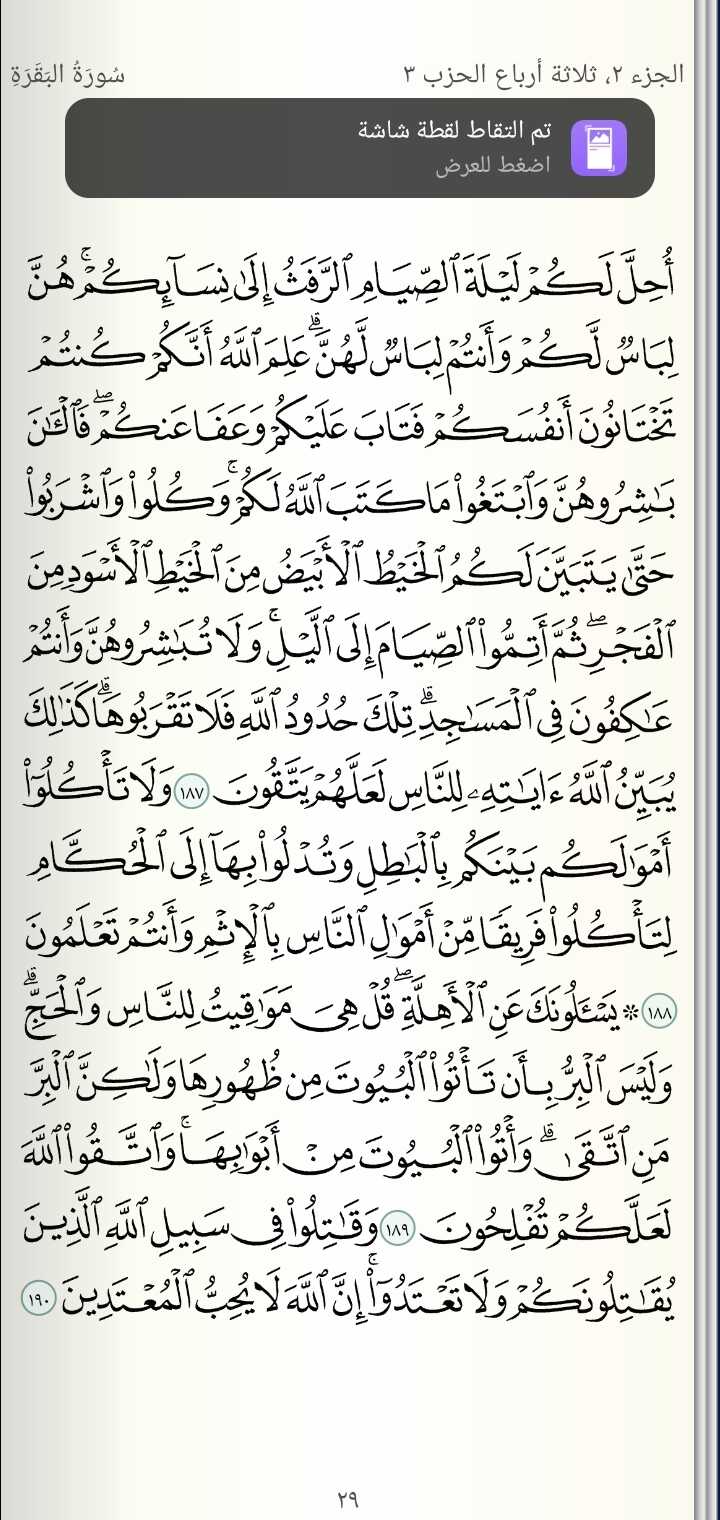 الجزء ٢، ثلاثة أرباع الحزب ٣
سُورَةُ البَقَرَةِ
تم التقاط لقطة شاشة
اضغط للعرض
أُحِلَّ لَكُمۡ لَيۡلَةَ ٱلصِّيَامِ ٱلرَّفَثُ إِلَىٰ نِسَآئِكُمۡۚ هُنَّ
لِبَاسٞ لَّكُمۡ وَأَنتُمۡ لِبَاسٞ لَّهُنَّۗ عَلِمَ ٱللَّهُ أَنَّكُمۡ كُنتُمۡ
تَخۡتَانُونَ أَنفُسَكُمۡ فَتَابَ عَلَيۡكُمۡ وَعَفَا عَنكُمۡۖ فَٱلۡـَٰٔنَ
بَٰشِرُوهُنَّ وَٱبۡتَغُواْ مَا كَتَبَ ٱللَّهُ لَكُمۡۚ وَكُلُواْ وَٱشۡرَبُواْ
حَتَّىٰ يَتَبَيَّنَ لَكُمُ ٱلۡخَيۡطُ ٱلۡأَبۡيَضُ مِنَ ٱلۡخَيۡطِ ٱلۡأَسۡوَدِ مِنَ
ٱلۡفَجۡرِۖ ثُمَّ أَتِمُّواْ ٱلصِّيَامَ إِلَى ٱلَّيۡلِۚ وَلَا تُبَٰشِرُوهُنَّ وَأَنتُمۡ
عَٰكِفُونَ فِي ٱلۡمَسَٰجِدِۗ تِلۡكَ حُدُودُ ٱللَّهِ فَلَا تَقۡرَبُوهَاۗ كَذَٰلِكَ
يُبَيِّنُ ٱللَّهُ ءَايَٰتِهِۦ لِلنَّاسِ لَعَلَّهُمۡ يَتَّقُونَ ١٨٧ وَلَا تَأۡكُلُوٓاْ
أَمۡوَٰلَكُم بَيۡنَكُم بِٱلۡبَٰطِلِ وَتُدۡلُواْ بِهَآ إِلَى ٱلۡحُكَّامِ
لِتَأۡكُلُواْ فَرِيقٗا مِّنۡ أَمۡوَٰلِ ٱلنَّاسِ بِٱلۡإِثۡمِ وَأَنتُمۡ تَعۡلَمُونَ
١٨٨ ۞ يَسۡـَٔلُونَكَ عَنِ ٱلۡأَهِلَّةِۖ قُلۡ هِيَ مَوَٰقِيتُ لِلنَّاسِ وَٱلۡحَجِّۗ
وَلَيۡسَ ٱلۡبِرُّ بِأَن تَأۡتُواْ ٱلۡبُيُوتَ مِن ظُهُورِهَا وَلَٰكِنَّ ٱلۡبِرَّ
مَنِ ٱتَّقَىٰۗ وَأۡتُواْ ٱلۡبُيُوتَ مِنۡ أَبۡوَٰبِهَاۚ وَٱتَّقُواْ ٱللَّهَ
لَعَلَّكُمۡ تُفۡلِحُونَ ١٨٩ وَقَٰتِلُواْ فِي سَبِيلِ ٱللَّهِ ٱلَّذِينَ
يُقَٰتِلُونَكُمۡ وَلَا تَعۡتَدُوٓاْۚ إِنَّ ٱللَّهَ لَا يُحِبُّ ٱلۡمُعۡتَدِينَ ١٩٠
٢٩